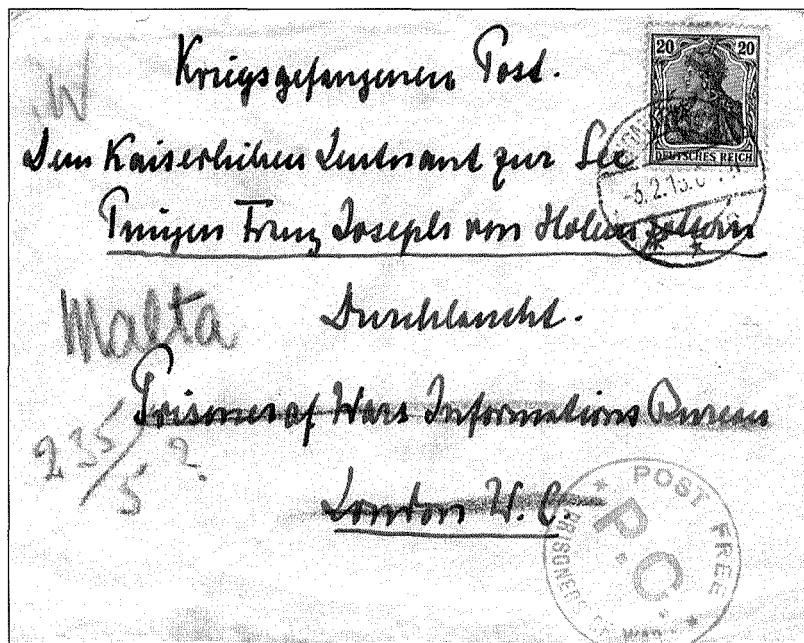 Kriegsgefangenen Post.
20 20
DEUTSCHES REICH
Dem Kaiserlichen Leutnant zur See
Prinzen Franz Joseph von Hohenzollern
Malta
Durchlaucht.
Prisoner of Wars Informations Bureau
235/5?
London W.C.
POST FREE
P.C.
PRISONERS